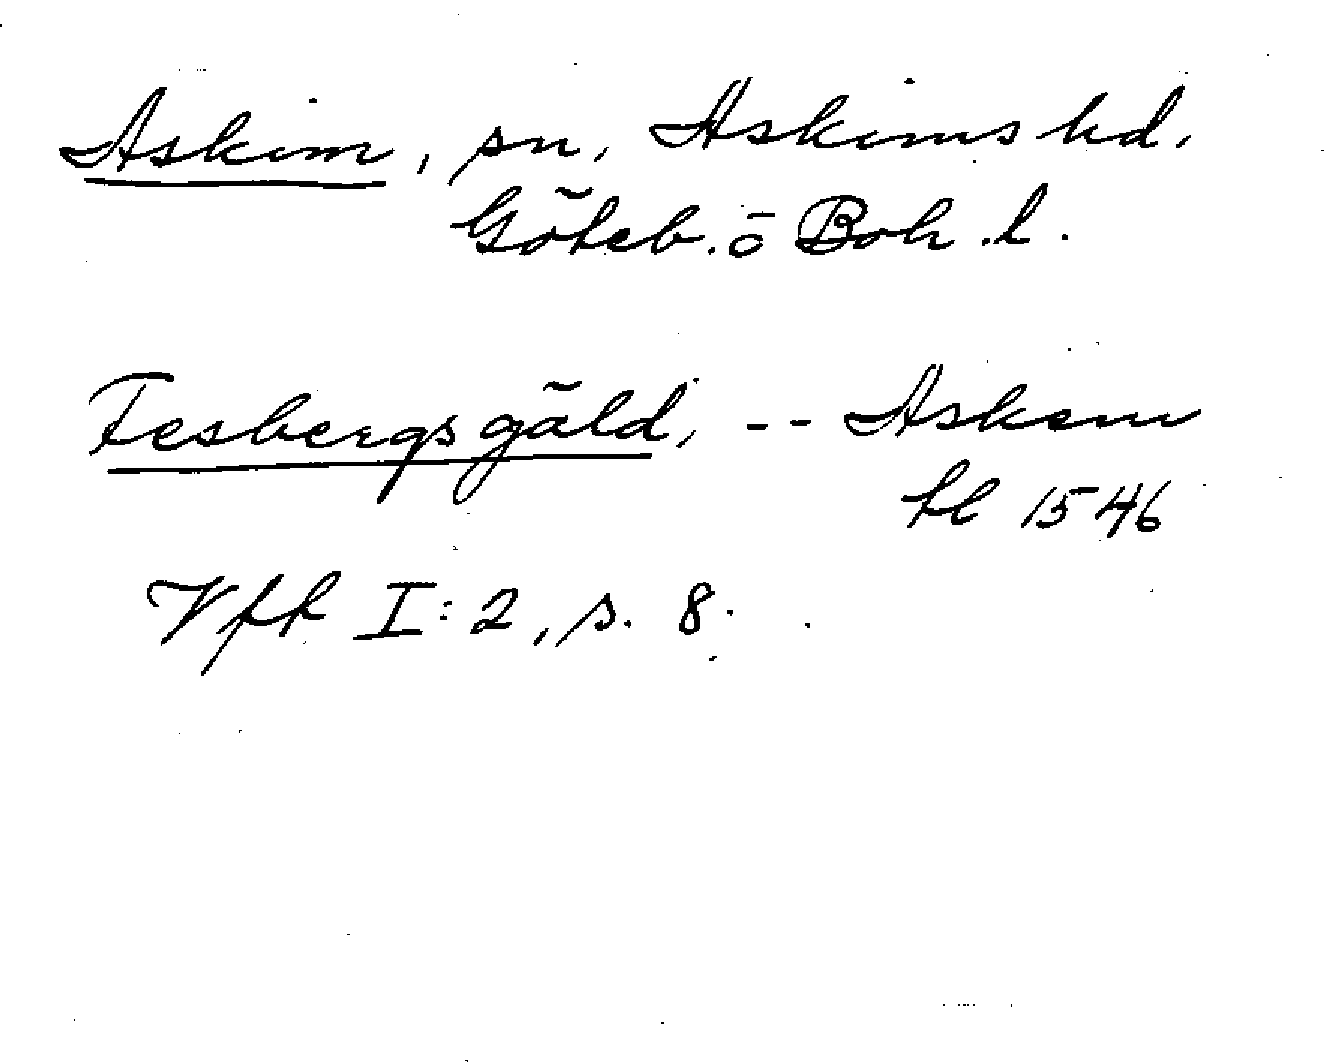 Askim, sn, Askims hd,
Göteb. ö Boh. l.
Fesbergs gäld, -- Askem
tl 1546
Vfk I:2, s. 8.